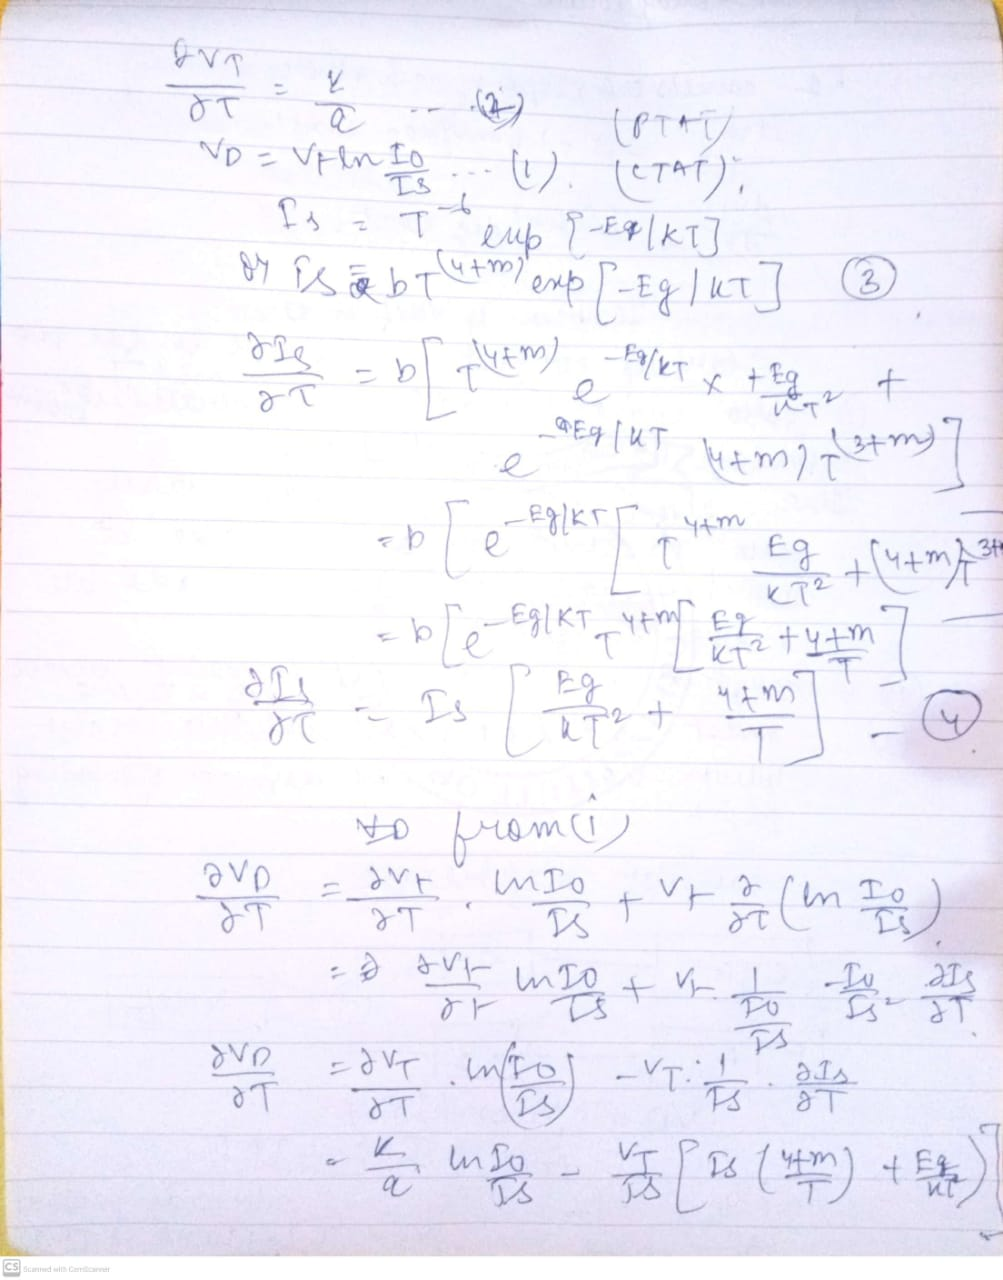 ∂VT/∂T = K/q ... (2) (PTAT)
VD = VT ln I0/Is ... (1). (CTAT);
Is = T^-6 exp{-Eg/KT]
or Is = bT^(4+m) exp[-Eg/KT] (3)
∂Is/∂T = b[T^(4+m) e^-Eg/KT × +Eg/KT² +
e^-Eg/KT (4+m) T^(3+m)]
= b[e^-Eg/KT [T^4+m Eg/KT² + (4+m)T^3+m
= b[e^-Eg/KT T^4+m [Eg/KT² + 4+m/T]
∂Is/∂T = Is [Eg/KT² + 4+m/T] - (4)
from (i)
∂VD/∂T = ∂VT/∂T . ln I0/Is + VT ∂/∂T (ln I0/Is)
= ∂VT/∂T ln I0/Is + VT. 1/(I0/Is) -I0/Is² ∂Is/∂T
∂VD/∂T = ∂VT/∂T . ln(I0/Is) - VT. 1/Is . ∂Is/∂T
= K/q ln I0/Is - VT/Is [Is (4+m/T) + Eg/KT²)]
CS Scanned with CamScanner